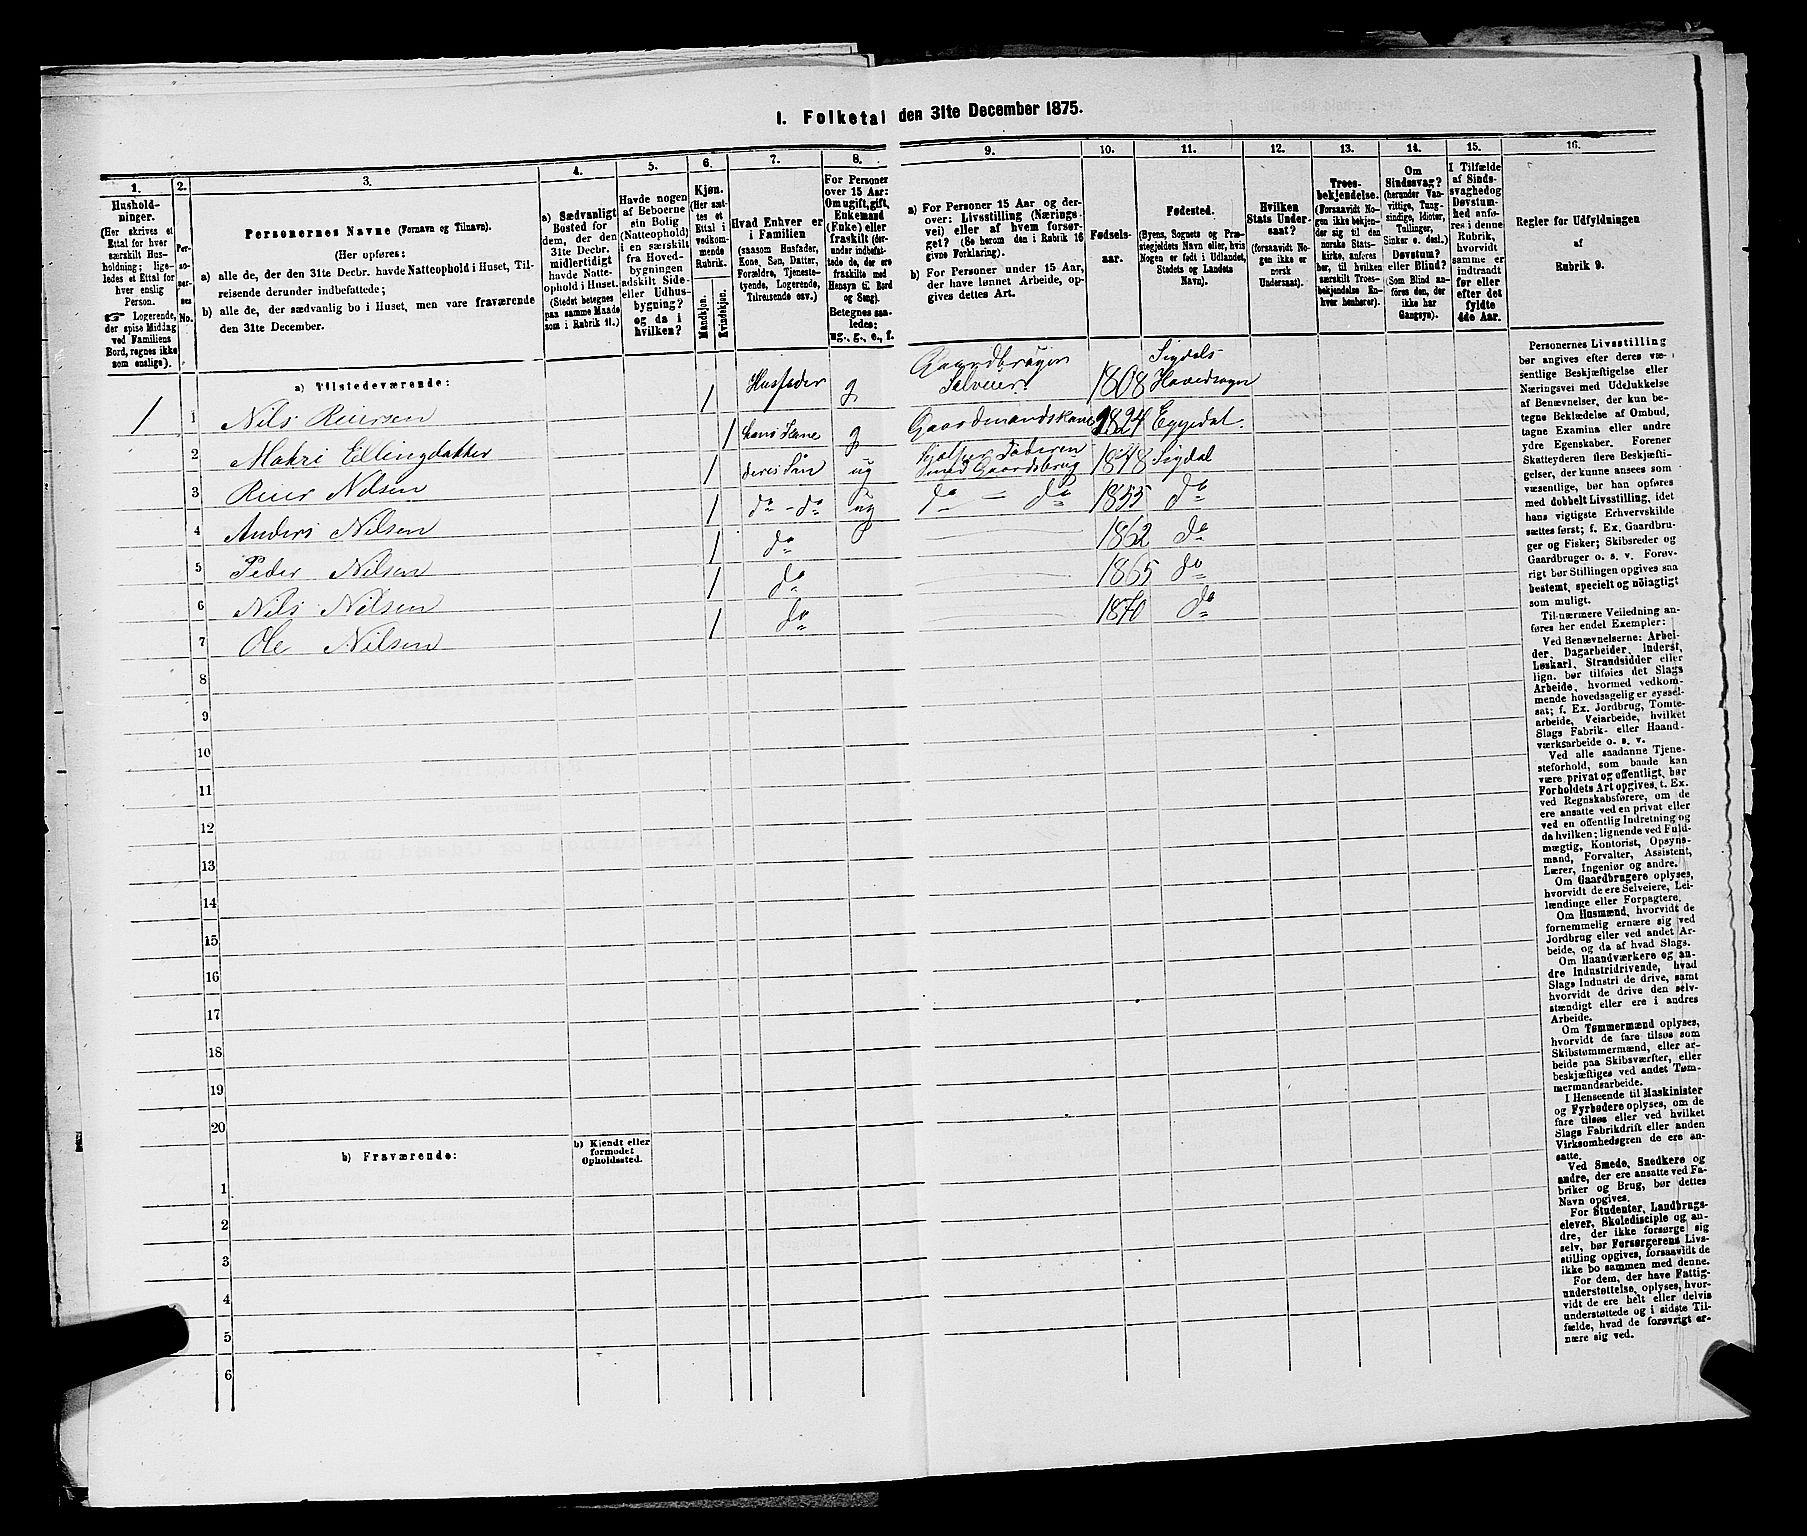 I. Folketal den 31te December 1875.
1.
2.
3.
4.
5.
6.
7.
8.
9.
10.
11.
12.
13.
14.
15.
16.
Hushold-
ninger.
(Her skrives et
Ettal for hver
særskilt Hus-
holdning; lige-
ledes et Ettal for
hver enslig
Person.
☞ Logerende,
der spise Middag
ved Familiens
Bord, regnes ikke
som enslige).
Per-
so-
ner-
nes
No.
Personernes Navne (Fornavn og Tilnavn).
(Her opføres:
a) alle de, der den 31te Decbr. havde Natteophold i Huset, Til-
reisende derunder indbefattede;
b) alle de, der sædvanlig bo i Huset, men vare fraværende
den 31te December.
a) Sædvanligt
Bosted for
dem, der den
31te Decbr.
midlertidigt
havde Natte-
ophold i Huset.
(Stedet betegnes
paa samme Maade
som i Rubrik 11.)
Havde nogen
af Beboerne
sin Bolig
(Natteophold)
i en særskilt
fra Hoved-
bygningen
adskilt Side-
eller Udhus-
bygning?
og da i
hvilken?
Kjøn.
(Her sæt-
tes et
Ettal i
vedkom-
mende
Rubrik.
Mandkjøn.
Kvindekjøn.
Hvad Enhver er
i Familien
(saasom Husfader,
Kone, Søn, Datter,
Forældre, Tjeneste-
tyende, Logerende,
Tilreisende osv.)
For Personer
over 15 Aar:
Om ugift, gift,
Enkemand
(Enke) eller
fraskilt (der-
under indbefat-
tede de, der ere
fraskilte med
Hensyn til Bord
og Seng).
Betegnes saa-
ledes:
ug., g., e., f.
a) For Personer 15 Aar og der-
over: Livsstilling (Nærings-
vei) eller af hvem forsør-
get? (Se herom den i Rubrik 16
givne Forklaring).
b) For Personer under 15 Aar,
der have lønnet Arbeide, op-
gives dettes Art.
Fødsels-
aar.
Fødested.
(Byens, Sognets og Præ-
stegjeldets Navn eller, hvis
Nogen er født i Udlandet,
Stedets og Landets
Navn).
Hvilken
Stats Under-
saat?
(forsaavidt No-
gen ikke er
norsk
Undersaat).
Troes-
bekjendelse.
(Forsaavidt No-
gen ikke bekjen-
der sig til den
norske Stats-
kirke, anføres
her, til hvilken
særskilt Troes-
bekjendelse En-
hver henhører).
Om
Sindssvag?
(herunder Van-
vittige, Tung-
sindige, Idioter,
Tullinger,
Sinker o. desl.)
Døvstum?
eller Blind?
(Som Blind an-
føres den, der
ikke har
Gangsyn).
I Tilfælde
af Sinds-
svaghedog
Døvstum-
hed anfø-
res i denne
Rubrik,
hvorvidt
samme er
indtraadt
før eller
efter det
fyldte
4de Aar.
Regler for Udfyldningen
af
Rubrik 9.
a) Tilstedeværende:
1 1 Nils Reiersen 1 Husfader g Gaardbruger Selveier 1808 Sigdals Hovedsogn
2 Mahri Ellingdatter 1 hans Kone g Gaardmandskone 1824 Eggedal
3 Reier Nilsen 1 deres Søn ug Hjælper Faderen med Gaardsbrug 1848 Sigdal
4 Anders Nilsen 1 do - do ug do - do 1855 do
5 Peder Nilsen 1 do 1862 do
6 Nils Nilsen 1 do 1865 do
7 Ole Nilsen 1 do 1870 do
8
9
10
11
12
13
14
15
16
17
18
19
20
b) Fraværende:
b) Kjendt eller
formodet
Opholdssted.
1
2
3
4
5
6
Personernes Livsstilling
bør angives efter deres væ-
sentlige Beskjæftigelse eller
Næringsvei med Udelukkelse
af Benævnelser, der kun be-
tegne Beklædelse af Ombud,
tagne Examina eller andre
ydre Egenskaber. Forener
Skatteyderen flere Beskjæfti-
gelser, der kunne ansees som
væsentlige, bør han opføres
med dobbelt Livsstilling, idet
hans vigtigste Erhvervskilde
sættes først; f. Ex. Gaardbru-
ger og Fisker; Skibsreder og
Gaardbruger o. s. v. Forøv-
rigt bør Stillingen opgives saa
bestemt, specielt og nöiagtigt
som muligt.
Til nærmere Veiledning an-
føres her endel Exempler:
Ved Benævnelserne: Arbei-
der, Dagarbeider, Inderst,
Løskarl, Strandsidder eller
lign. bør tilføies det Slags
Arbeide, hvormed vedkom-
mende hovedsagelig er syssel-
sat; f. Ex. Jordbrug, Tomte-
arbeide, Veiarbeide, hvilket
Slags Fabrik- eller Haand-
værksarbeide o. s. v.
Ved alle saadanne Tjene-
steforhold, som baade kan
være privat og offentligt, bør
Forholdets Art opgives, t. Ex.
ved Regnskabsførere, om de
ere ansatte ved en privat eller
ved en offentlig Indretning og
da hvilken; lignende ved Fuld-
mægtig, Kontorist, Opsyns-
mand, Forvalter, Assistent,
Lærer, Ingeniør og andre.
Om Gaardbrugere oplyses,
hvorvidt de ere Selveiere, Lei-
lændinge eller Forpagtere.
Om Husmænd, hvorvidt de
fornemmelig ernære sig ved
Jordbrug eller ved andet Ar-
beide, og da af hvad Slags.
Om Haandværkere og an-
dre Industridrivende, hvad
Slags Industri de drive, samt
hvorvidt de drive den selv-
stændigt eller ere i andres
Arbeide.
Om Tømmermænd oplyses,
hvorvidt de fare tilsøs som
Skibstømmermænd, eller ar-
beide paa Skibsværfter, eller
beskjæftiges ved andet Tøm-
mermandsarbeide.
I Henseende til Maskinister
og Fyrbødere oplyses, om de
fare tilsøs eller ved hvilket
Slags Fabrikdrift eller anden
Virksomhedsgren de ere an-
satte.
Ved Smede, Snedkere og
andre, der ere ansatte ved Fa-
briker og Brug, bør dettes
Navn opgives.
For Studenter, Landbrugs-
elever, Skoledisciple og an-
dre, der ikke forsørge sig
selv, bør Forsørgerens Livs-
stilling opgives, forsaavidt de
ikke bo sammen med denne.
For dem, der have Fattig-
understøttelse, oplyses, hvor-
vidt de ere helt eller delvis
understøttede og i sidste Til-
fælde, hvad de forøvrigt er-
nære sig ved.